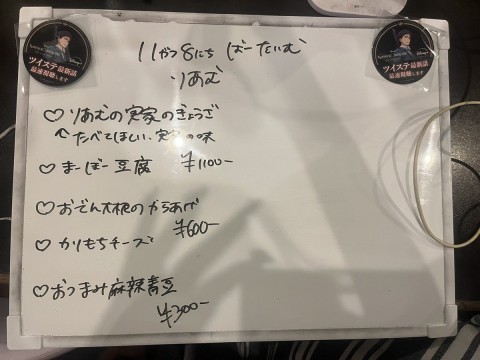 11がつ8にち ばーたいむ
りあむ
♡りあむの実家のぎょうざ
たべてほしい、実家の味
♡まーぼー豆腐 ¥1100-
♡おでん大根のからあげ
¥600-
♡かりもちチーズ
♡おつまみ麻辣青豆
¥300-
ツイステ最新話
最速視聴します
ツイステ最新話
最速視聴します